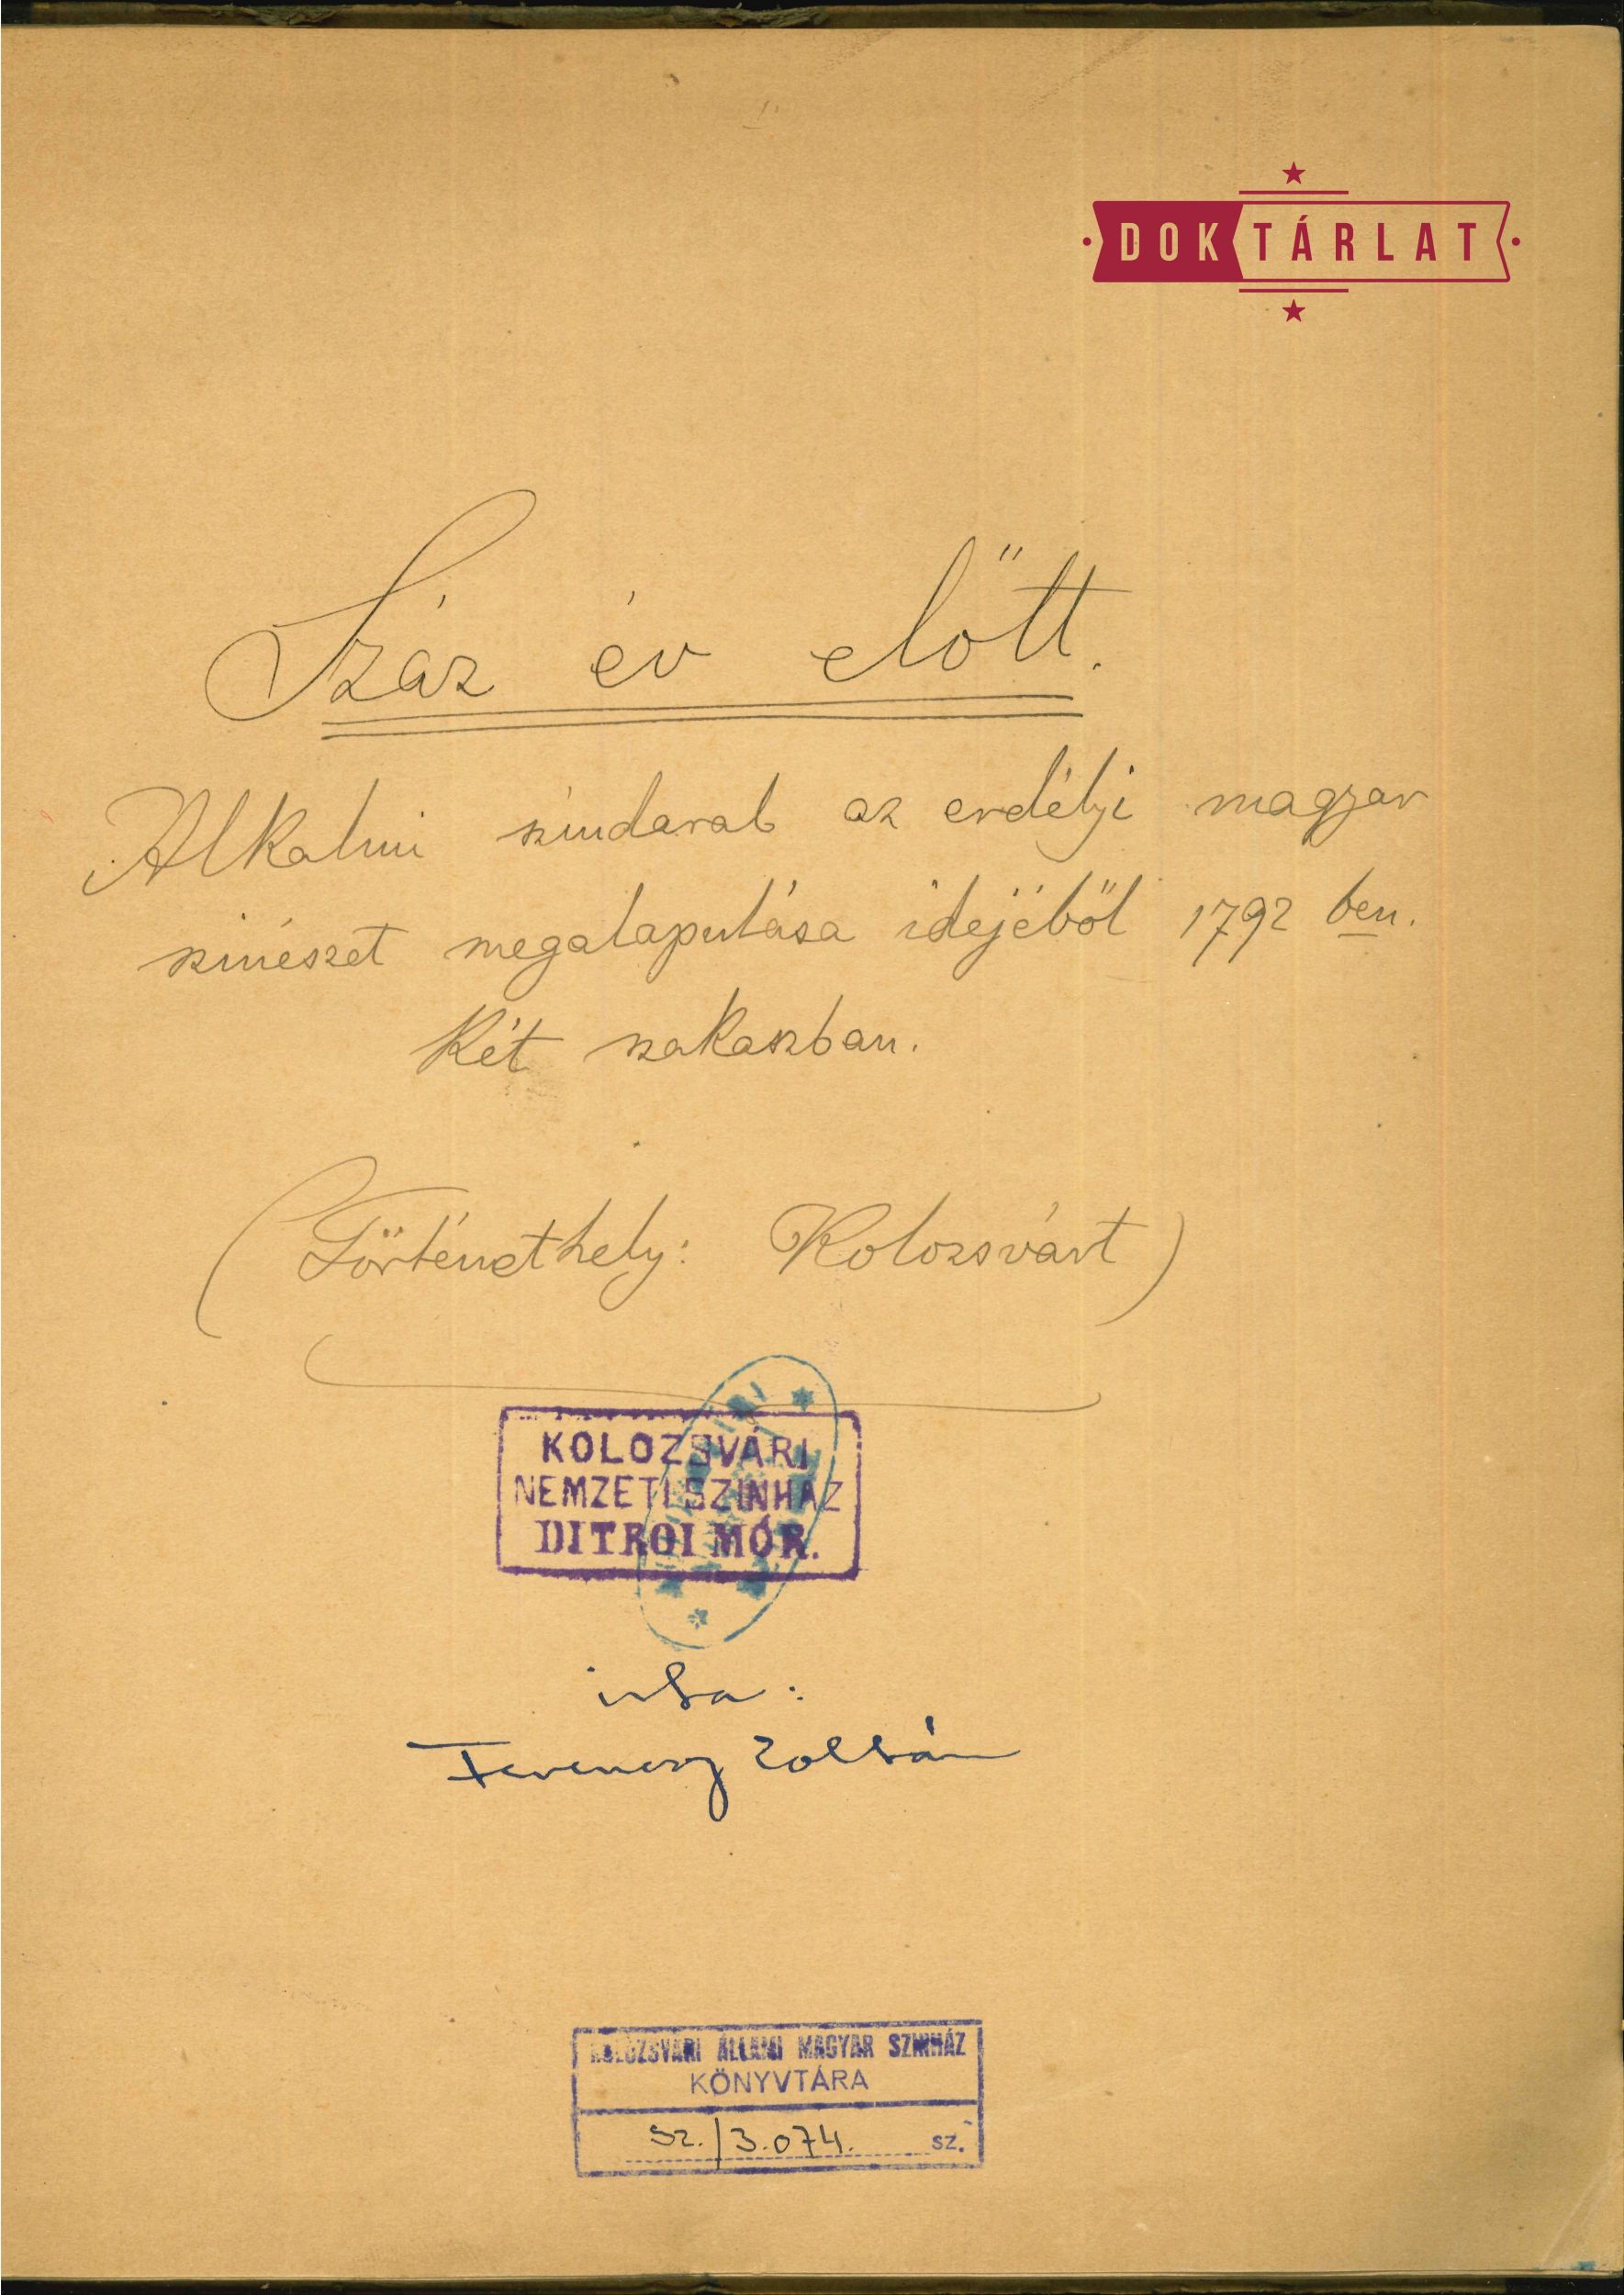 DOKTÁRLAT
Száz év előtt.
Alkalmi szindarab az erdélyi magyar
szinészet megalapulása idejéből 1792 ben.
Két szakaszban.
(Történethely: Kolozsvárt)
KOLOZSVÁRI
NEMZETI SZINHÁZ
DITROI MÓR.
irta:
Ferenczy Zoltán
KOLOZSVÁRI ÁLLAMI MAGYAR SZINHÁZ
KÖNYVTÁRA
Sz./3.074. sz.